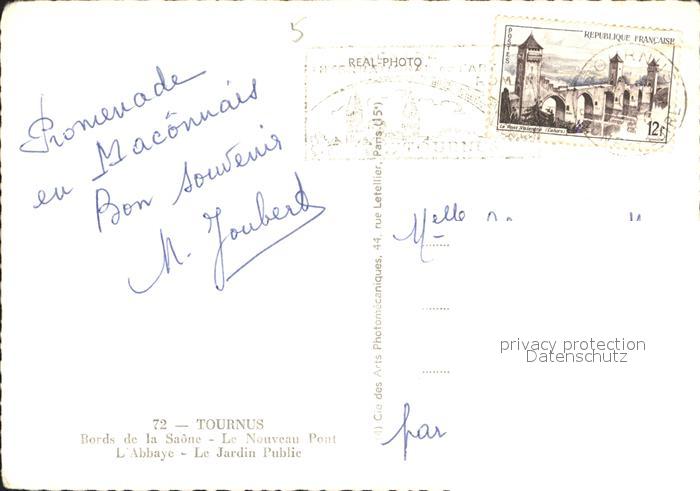 5
REAL-PHOTO
POSTES
REPUBLIQUE FRANÇAISE
Le Pont Valentré (Cahors)
12F
Promenade
en Macônnais
Bon souvenir
M. Joubert
Cie des Arts Photomécaniques, 44, rue Letellier, Paris (15e)
Melle
privacy protection
Datenschutz
par
72 — TOURNUS
Bords de la Saône - Le Nouveau Pont
L'Abbaye - Le Jardin Public